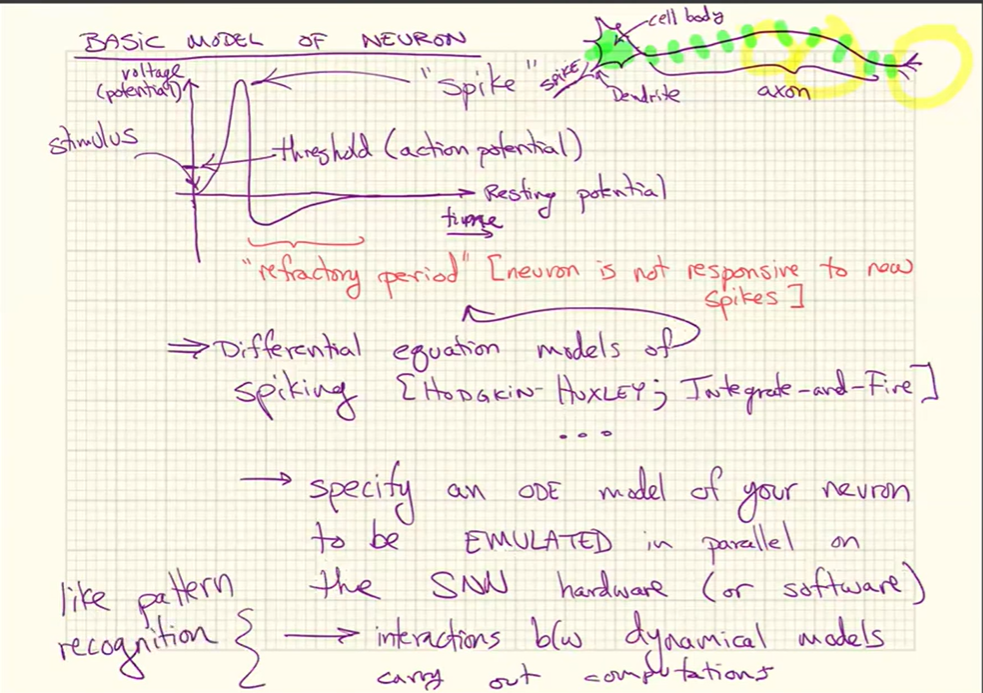 BASIC MODEL OF NEURON
cell body
spike
Dendrite
axon
voltage
(potential)
"spike"
stimulus
threshold (action potential)
Resting potential
time
"refractory period" [neuron is not responsive to new
spikes]
⇒ Differential equation models of
spiking [HODGKIN-HUXLEY; Integrate-and-Fire]
...
→ specify an ODE model of your neuron
to be EMULATED in parallel on
the SNN hardware (or software)
like pattern
recognition
→ interactions b/w dynamical models
carry out computations